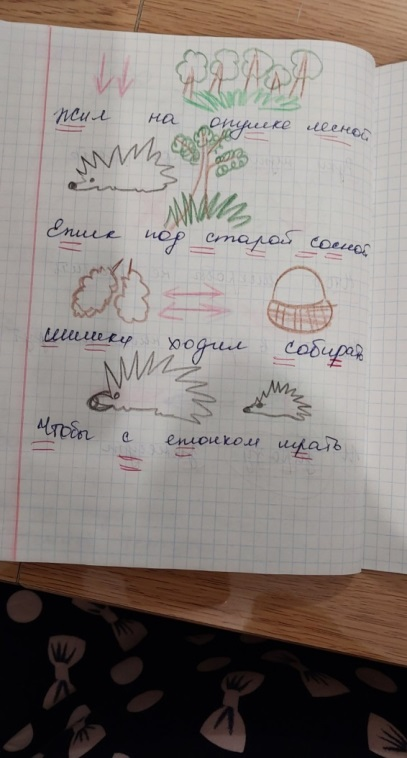 Жил на опушке лесной
Ежик под старой сосной
Шишки ходил собирать
Чтобы с ежонком играть